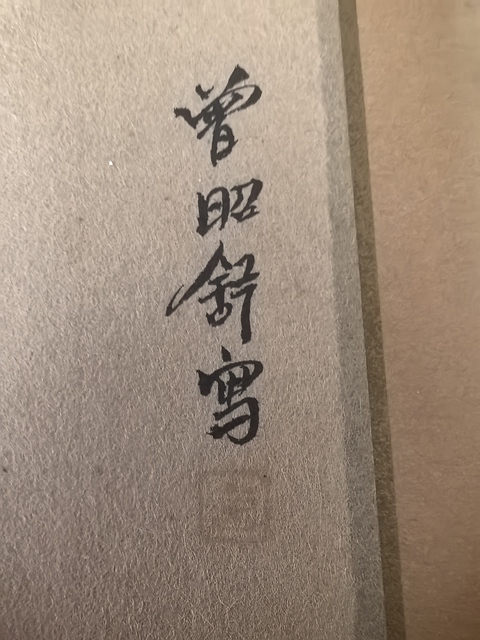 曾昭舒寫